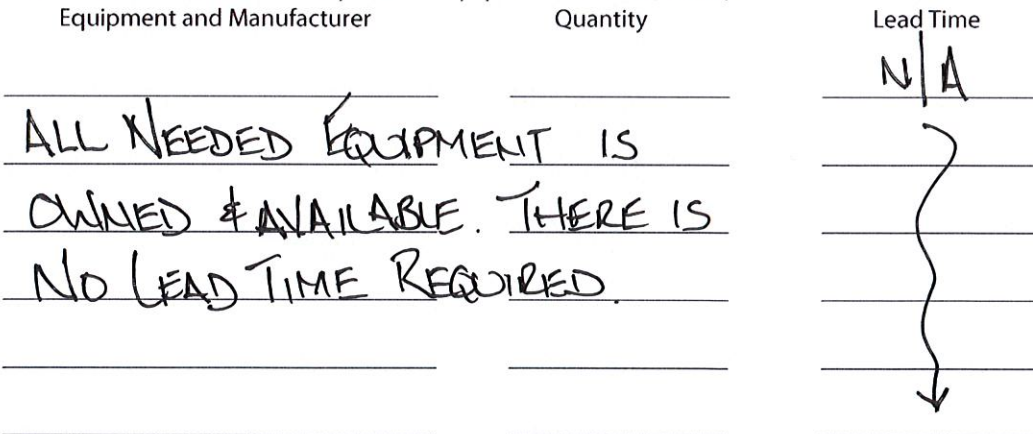 Equipment and Manufacturer Quantity Lead Time
N/A
ALL NEEDED EQUIPMENT IS
OWNED & AVAILABLE. THERE IS
NO LEAD TIME REQUIRED.